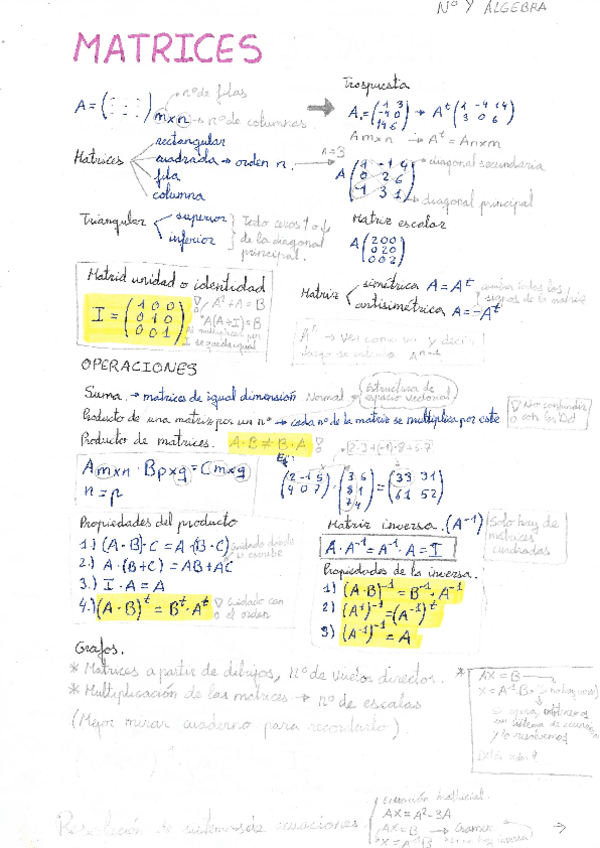 Nº Y ÁLGEBRA
MATRICES
A = (∴ ∴ ∴) m×n
nº de filas
nº de columnas
Matrices
rectangular
cuadrada → orden n.
fila
columna
Traspuesta
A = (1 3 / -4 0 / 14 6) → Aᵗ (1 -4 14 / 3 0 6)
Amxn → Aᵗ = Anxm
n=3
diagonal secundaria
diagonal principal
Triangular
superior
inferior
Todo ceros ↑ o ↓
de la diagonal
principal.
Matriz escalar
A (2 0 0 / 0 2 0 / 0 0 2)
Matrid unidad o identidad
I = (1 0 0 / 0 1 0 / 0 0 1)
A² + A = B
A(A+I) = B
Matriz
simétrica A = Aᵗ
antisimétrica A = -Aᵗ
cambian todos los
signos de la matriz
Aⁿ → Ver como va y decir
OPERACIONES
Suma → matrices de igual dimensión Normal
Estructura de
espacio vectorial
Producto de una matriz por un nº → cada nº de la matriz se multiplica por este
No confundir
con los Det
Producto de matrices. A·B ≠ B·A
2·3+(-1)·8+5·7
Amxn · Bpxq = Cmxq
n = p
Ej:
(2 -1 5 / 4 0 7) · (3 6 / 8 1 / 7 4) = (33 31 / 61 52)
Propiedades del producto
1.) (A·B)·C = A·(B·C)
2.) A·(B+C) = AB+AC
3.) I·A = A
4.) (A·B)ᵗ = Bᵗ·Aᵗ
Cuidado con
el orden
Matriz inversa. (A⁻¹)
Solo hay de
matrices
cuadradas
A·A⁻¹ = A⁻¹·A = I
Propiedades de la inversa.
1) (A·B)⁻¹ = B⁻¹·A⁻¹
2) (Aᵗ)⁻¹ = (A⁻¹)ᵗ
3) (A⁻¹)⁻¹ = A
Grafos.
* Matrices a partir de dibujos, nº de vuelos director.
* Multiplicación de las matrices → nº de escalas
(Mejor mirar cuaderno para recordarlo).
* AX = B
X = A⁻¹B
y lo resolvemos
Resolución de sistemas de ecuaciones
Ecuación matricial.
AX = A² - 3A
AX = B → Cramer
X = A⁻¹B